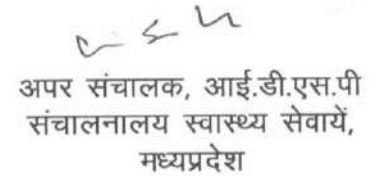 अपर संचालक, आई.डी.एस.पी
संचालनालय स्वास्थ्य सेवायें,
मध्यप्रदेश